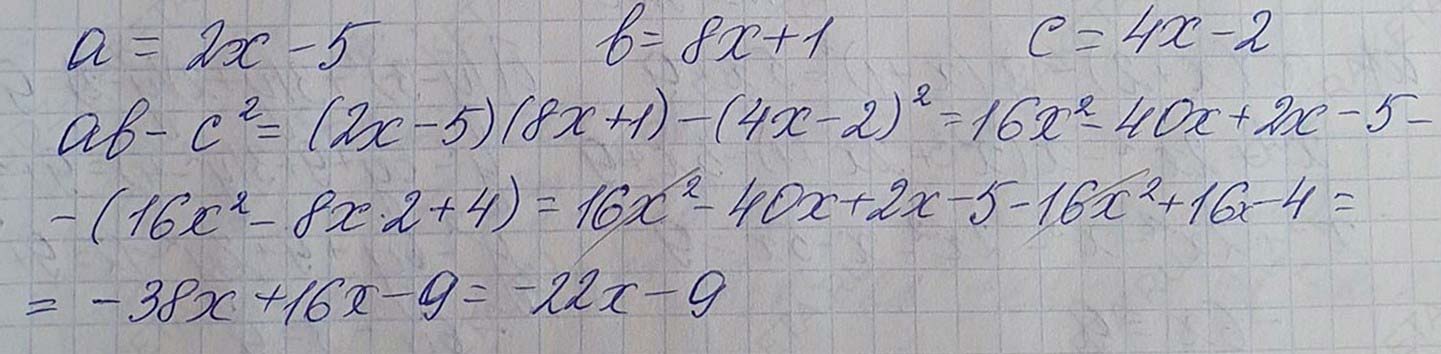 a = 2x - 5 b = 8x + 1 c = 4x - 2
ab - c² = (2x - 5)(8x + 1) - (4x - 2)² = 16x² - 40x + 2x - 5 -
- (16x² - 8x·2 + 4) = 16x² - 40x + 2x - 5 - 16x² + 16x - 4 =
= - 38x + 16x - 9 = -22x - 9